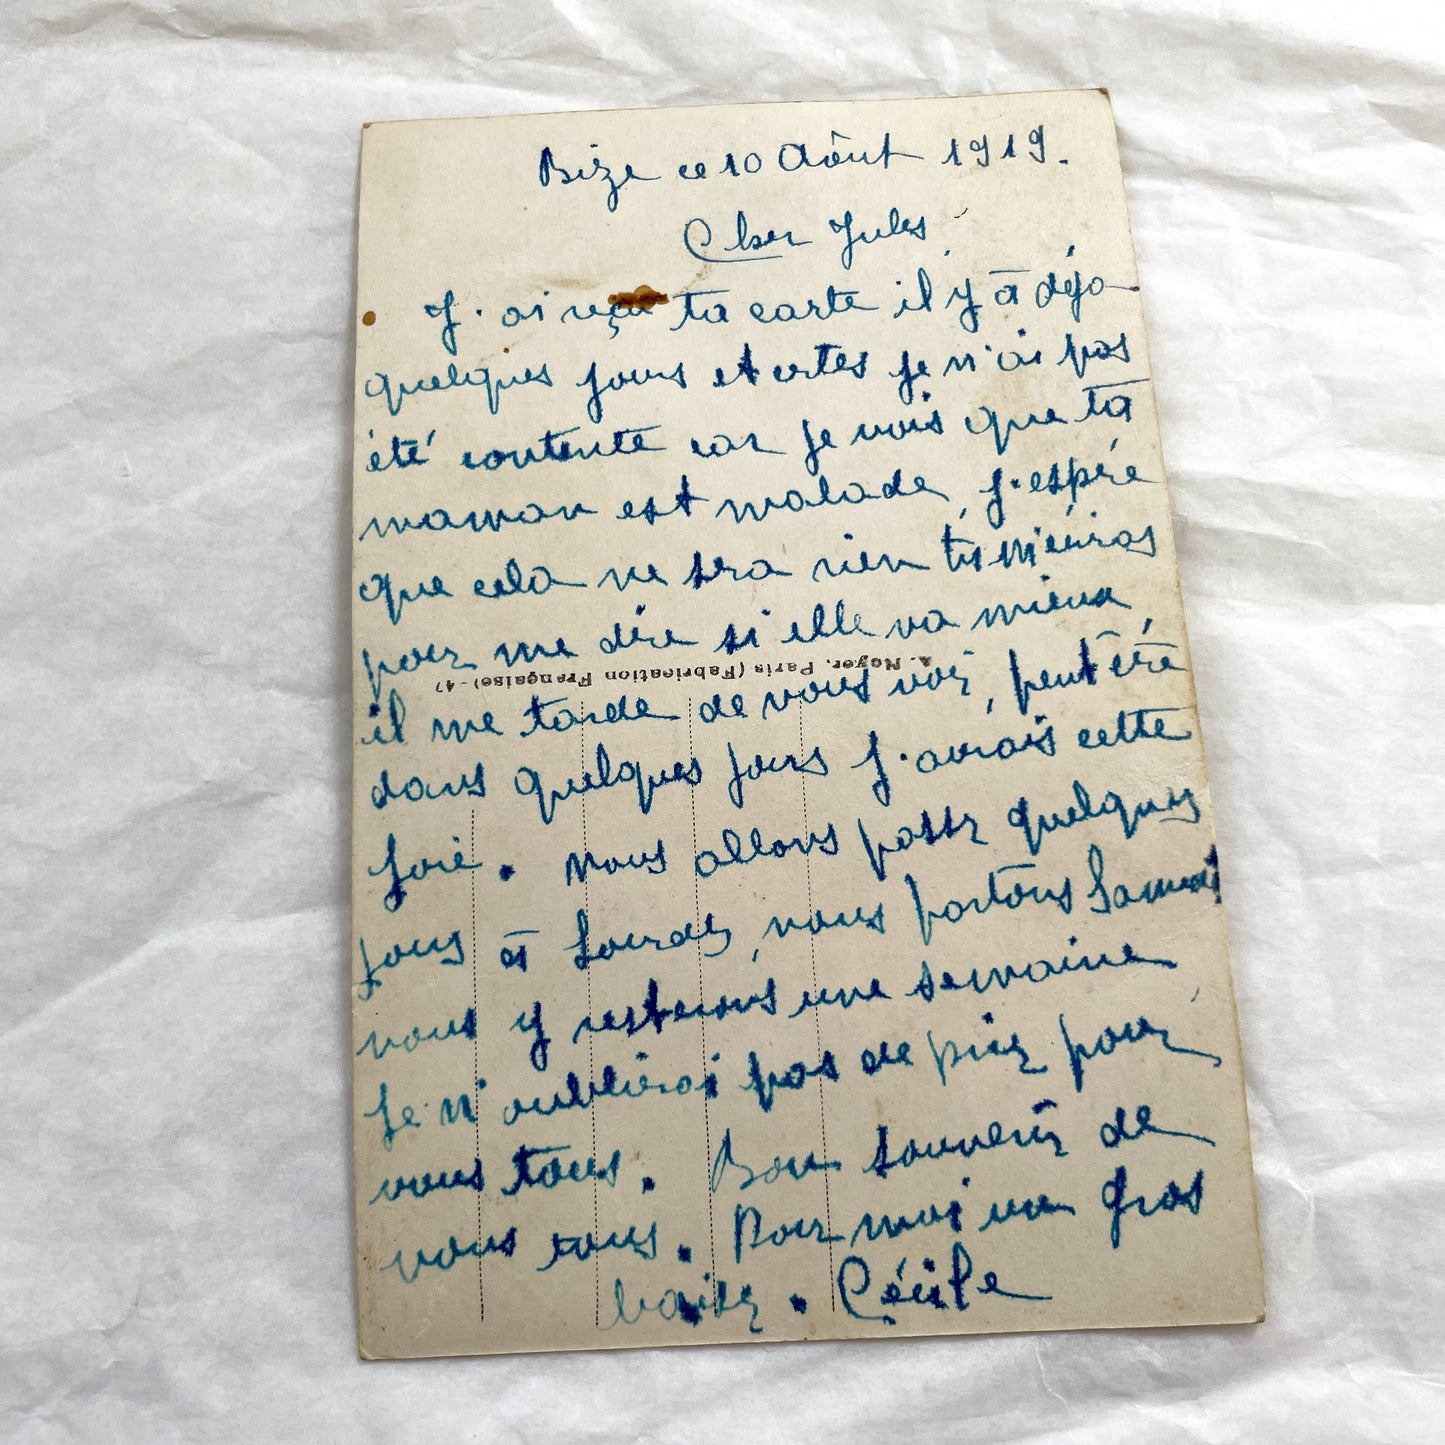 Bize ce 10 Aôut 1919.
Cher Jules,
J'ai reçu ta carte il y à déja
quelques jours et certes je n'ai pas
été contente car je vois que ta
maman est malade, j'espére
que cela ne sera rien tu m'éciras
pour me dire si elle va mieux,
A. Noyer, Paris (Fabrication Française) - 47
il me tarde de vous voir, peut être
dans quelques jours j'aurais cette
joie. Nous allons passer quelques
jours à Lourdes, nous partons Samedi
nous y resterons une semaine
Je n'oublierai pas de prier pour
vous tous. Bon souvenir de
nous tous. Pour moi un gros
baiser. Cécile